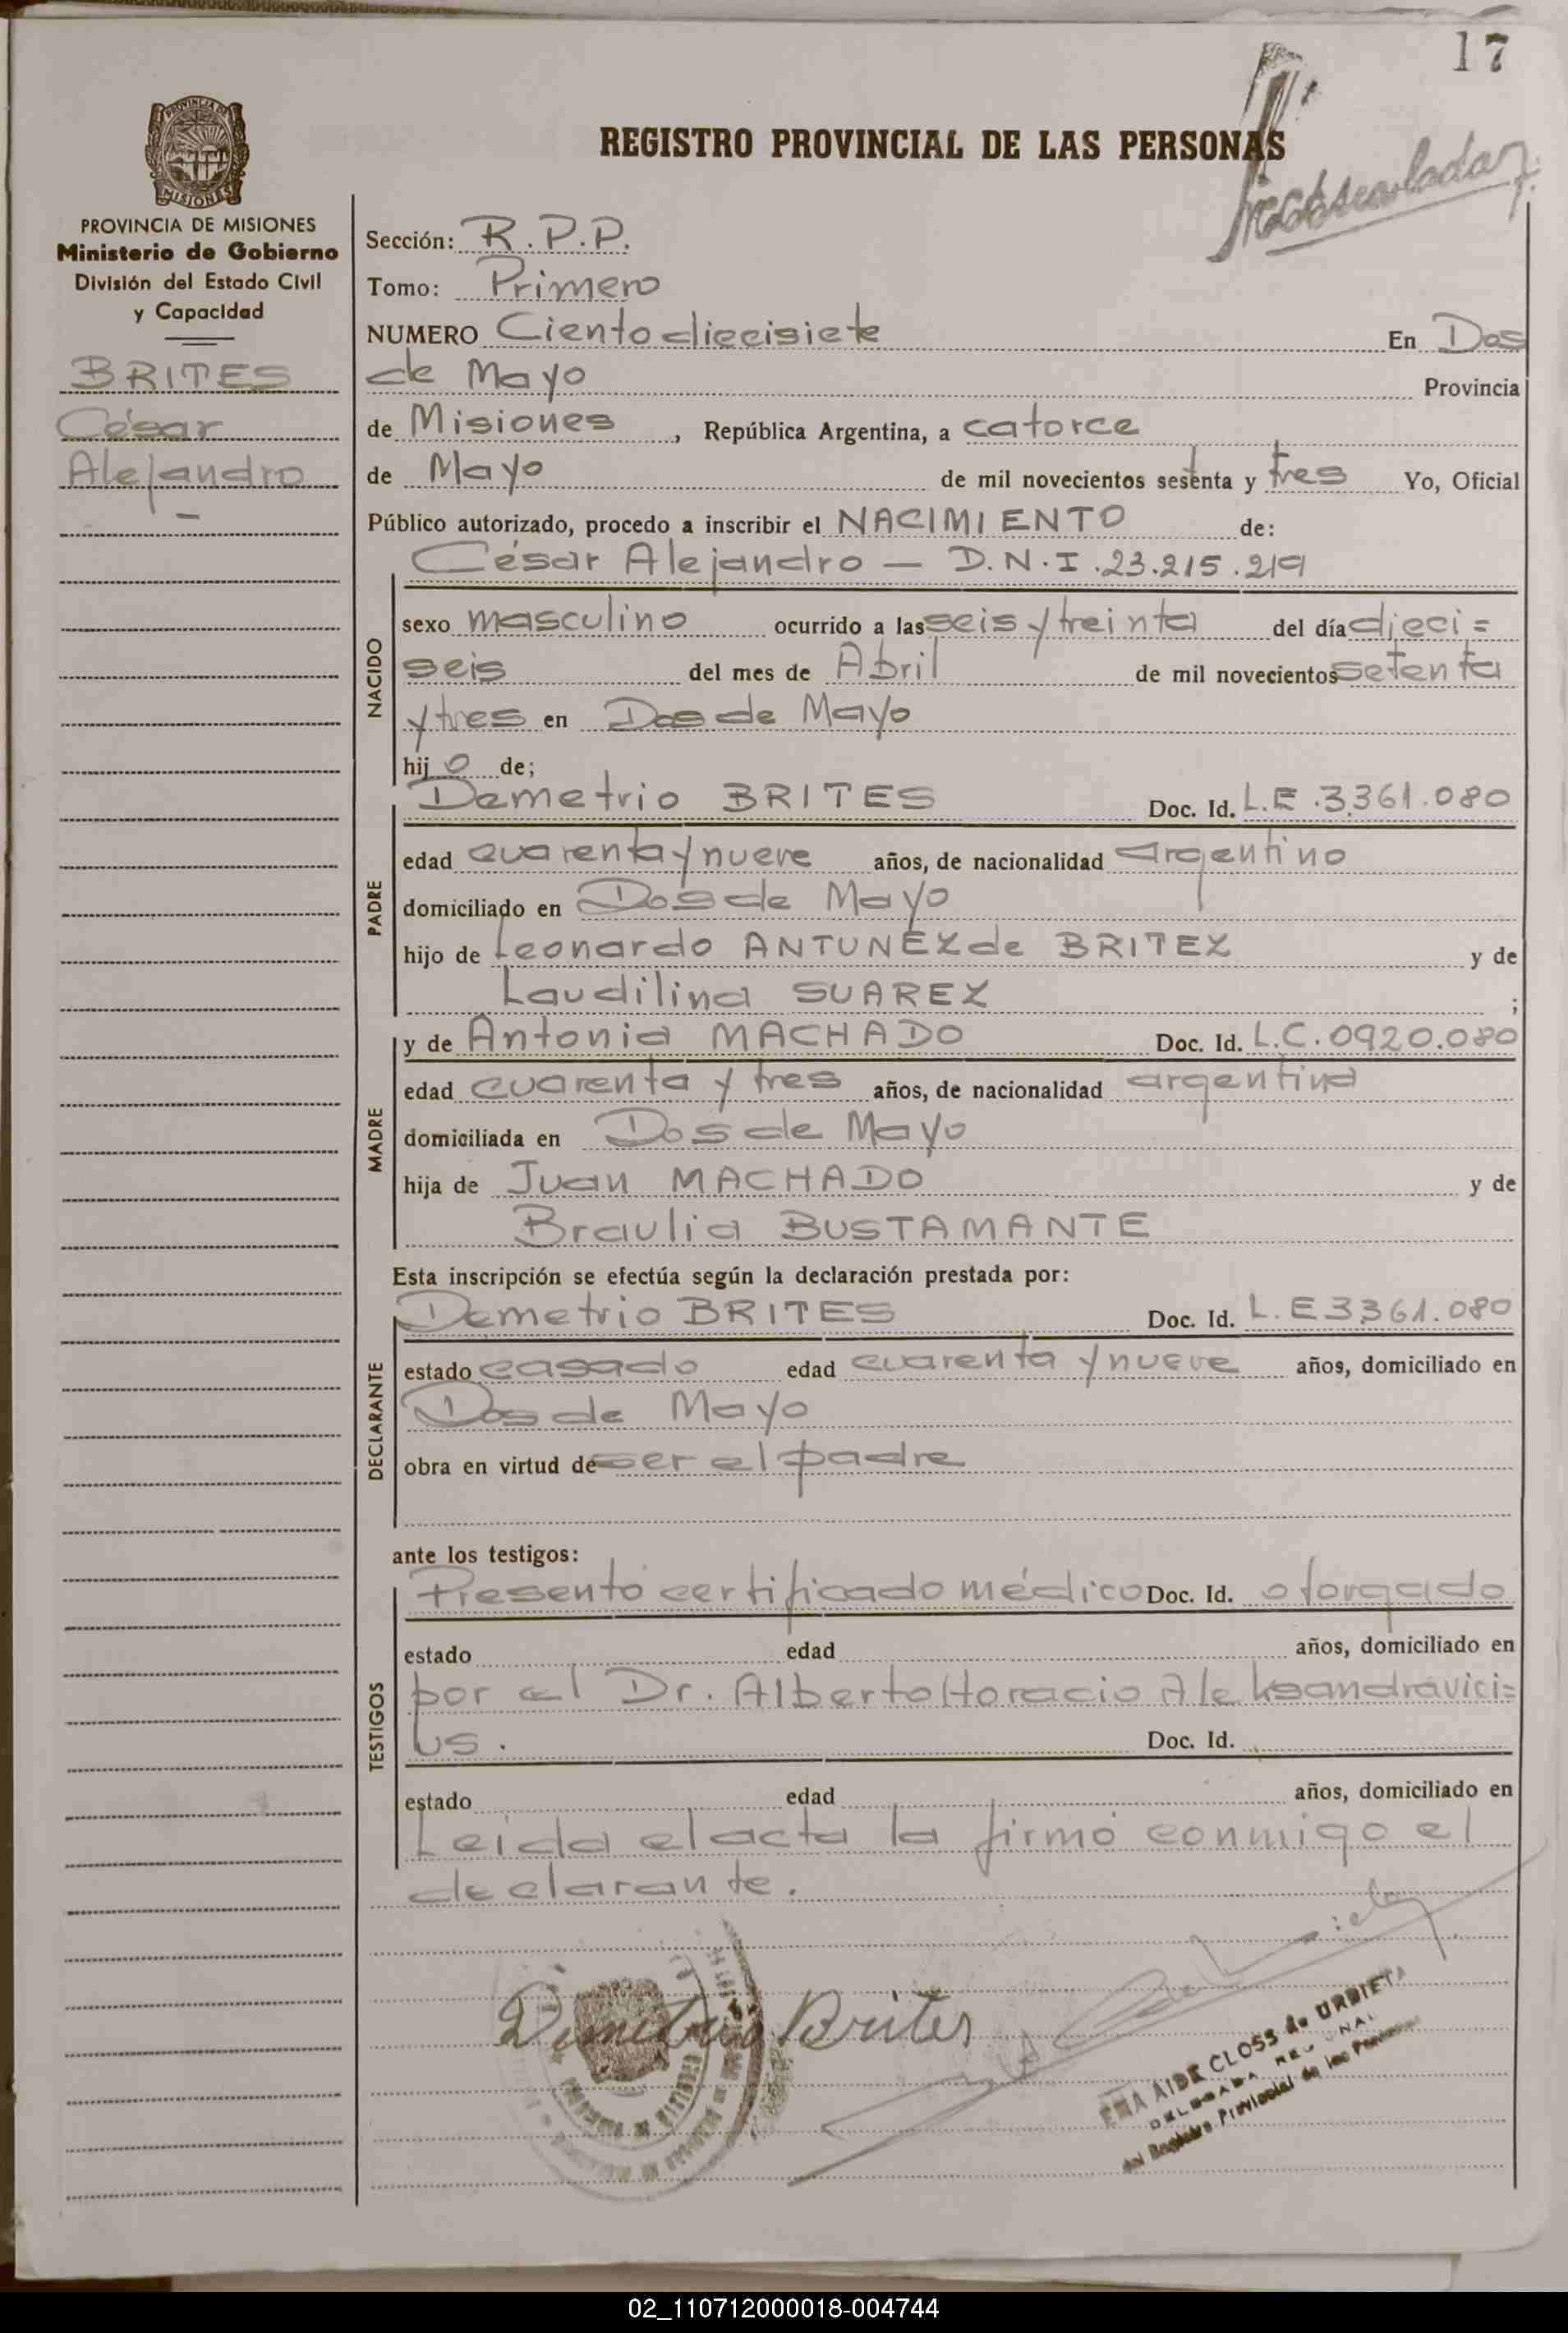 17
REGISTRO PROVINCIAL DE LAS PERSONAS
PROVINCIA DE MISIONES
Ministerio de Gobierno
División del Estado Civil
y Capacidad
BRITES
César
Alejandro
Sección: R.P.P.
Tomo: Primero
NUMERO Ciento diecisiete En Dos
de Mayo Provincia
de Misiones, República Argentina, a catorce
de Mayo de mil novecientos sesenta y tres Yo, Oficial
Público autorizado, procedo a inscribir el NACIMIENTO de:
César Alejandro — D.N.I. 23.215.219
NACIDO
sexo masculino ocurrido a las seis y treinta del día dieci=
seis del mes de Abril de mil novecientos setenta
y tres en Dos de Mayo
hijo de;
PADRE
Demetrio BRITES Doc. Id. L.E. 3.361.080
edad cuarenta y nueve años, de nacionalidad argentino
domiciliado en Dos de Mayo
hijo de Leonardo ANTUNEZ de BRITEZ y de
Laudilina SUAREZ ;
MADRE
y de Antonia MACHADO Doc. Id. L.C. 0920.080
edad cuarenta y tres años, de nacionalidad argentina
domiciliada en Dos de Mayo
hija de Juan MACHADO y de
Braulia BUSTAMANTE
Esta inscripción se efectúa según la declaración prestada por:
DECLARANTE
Demetrio BRITES Doc. Id. L.E 3.361.080
estado casado edad cuarenta y nueve años, domiciliado en
Dos de Mayo
obra en virtud de ser el padre
ante los testigos:
TESTIGOS
Presento certificado médico Doc. Id. otorgado
estado edad años, domiciliado en
por el Dr. Alberto Horacio Aleksandravici=
us. Doc. Id.
estado edad años, domiciliado en
Leída el acta la firmó conmigo el
declarante.
Demetrio Brites
AIDE CLOSS de URBIETA
DELEGADA REGIONAL
del Registro Provincial de las Personas
02_110712000018-004744